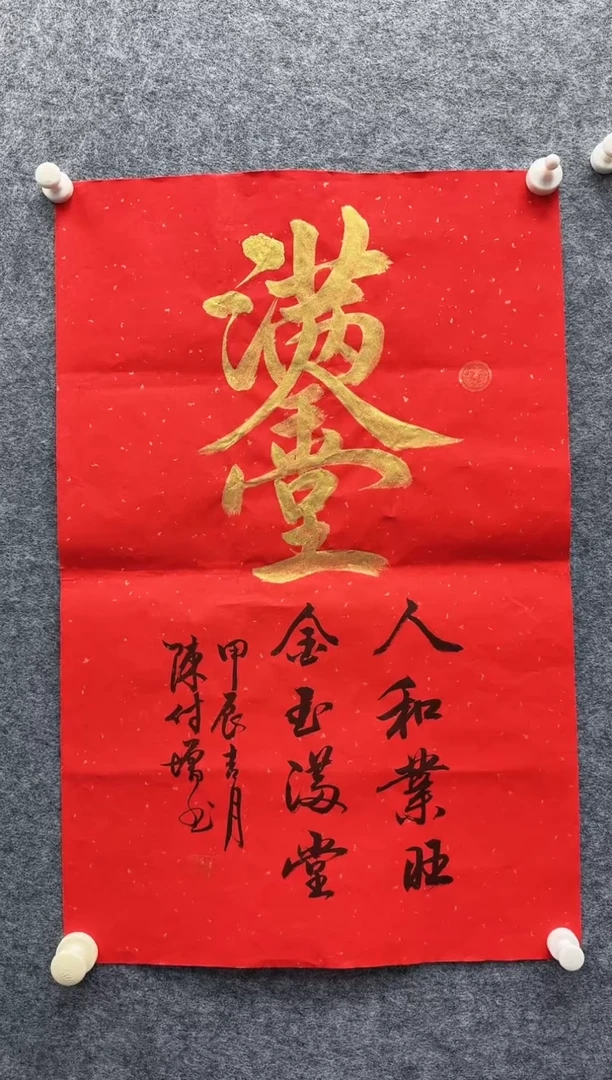 金玉满堂
人和業旺
金玉满堂
甲辰吉月
陳付增书